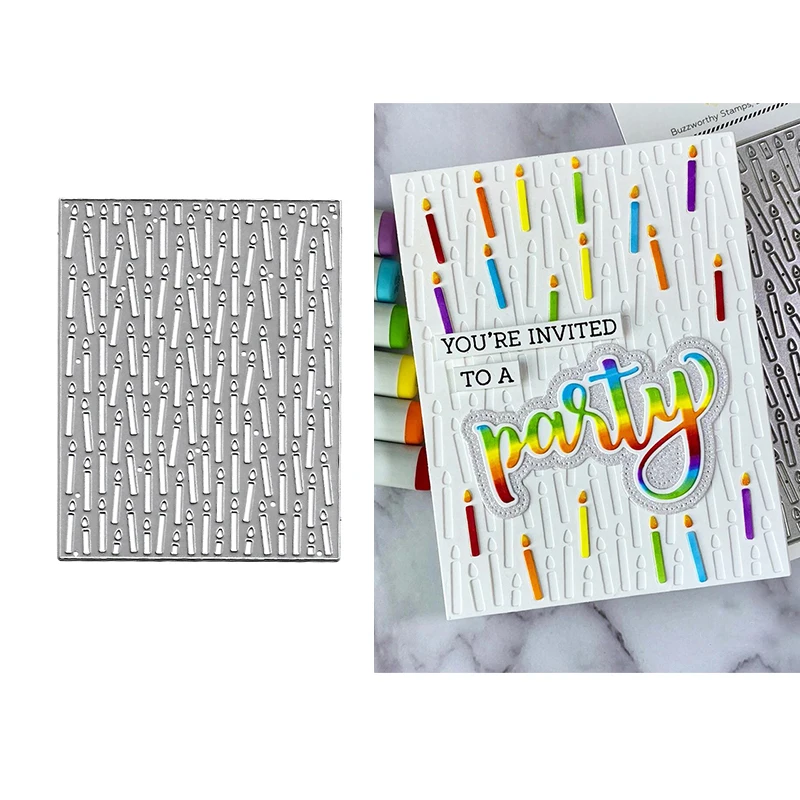 Buzzworthy Stamps,
YOU'RE INVITED
TO A
party